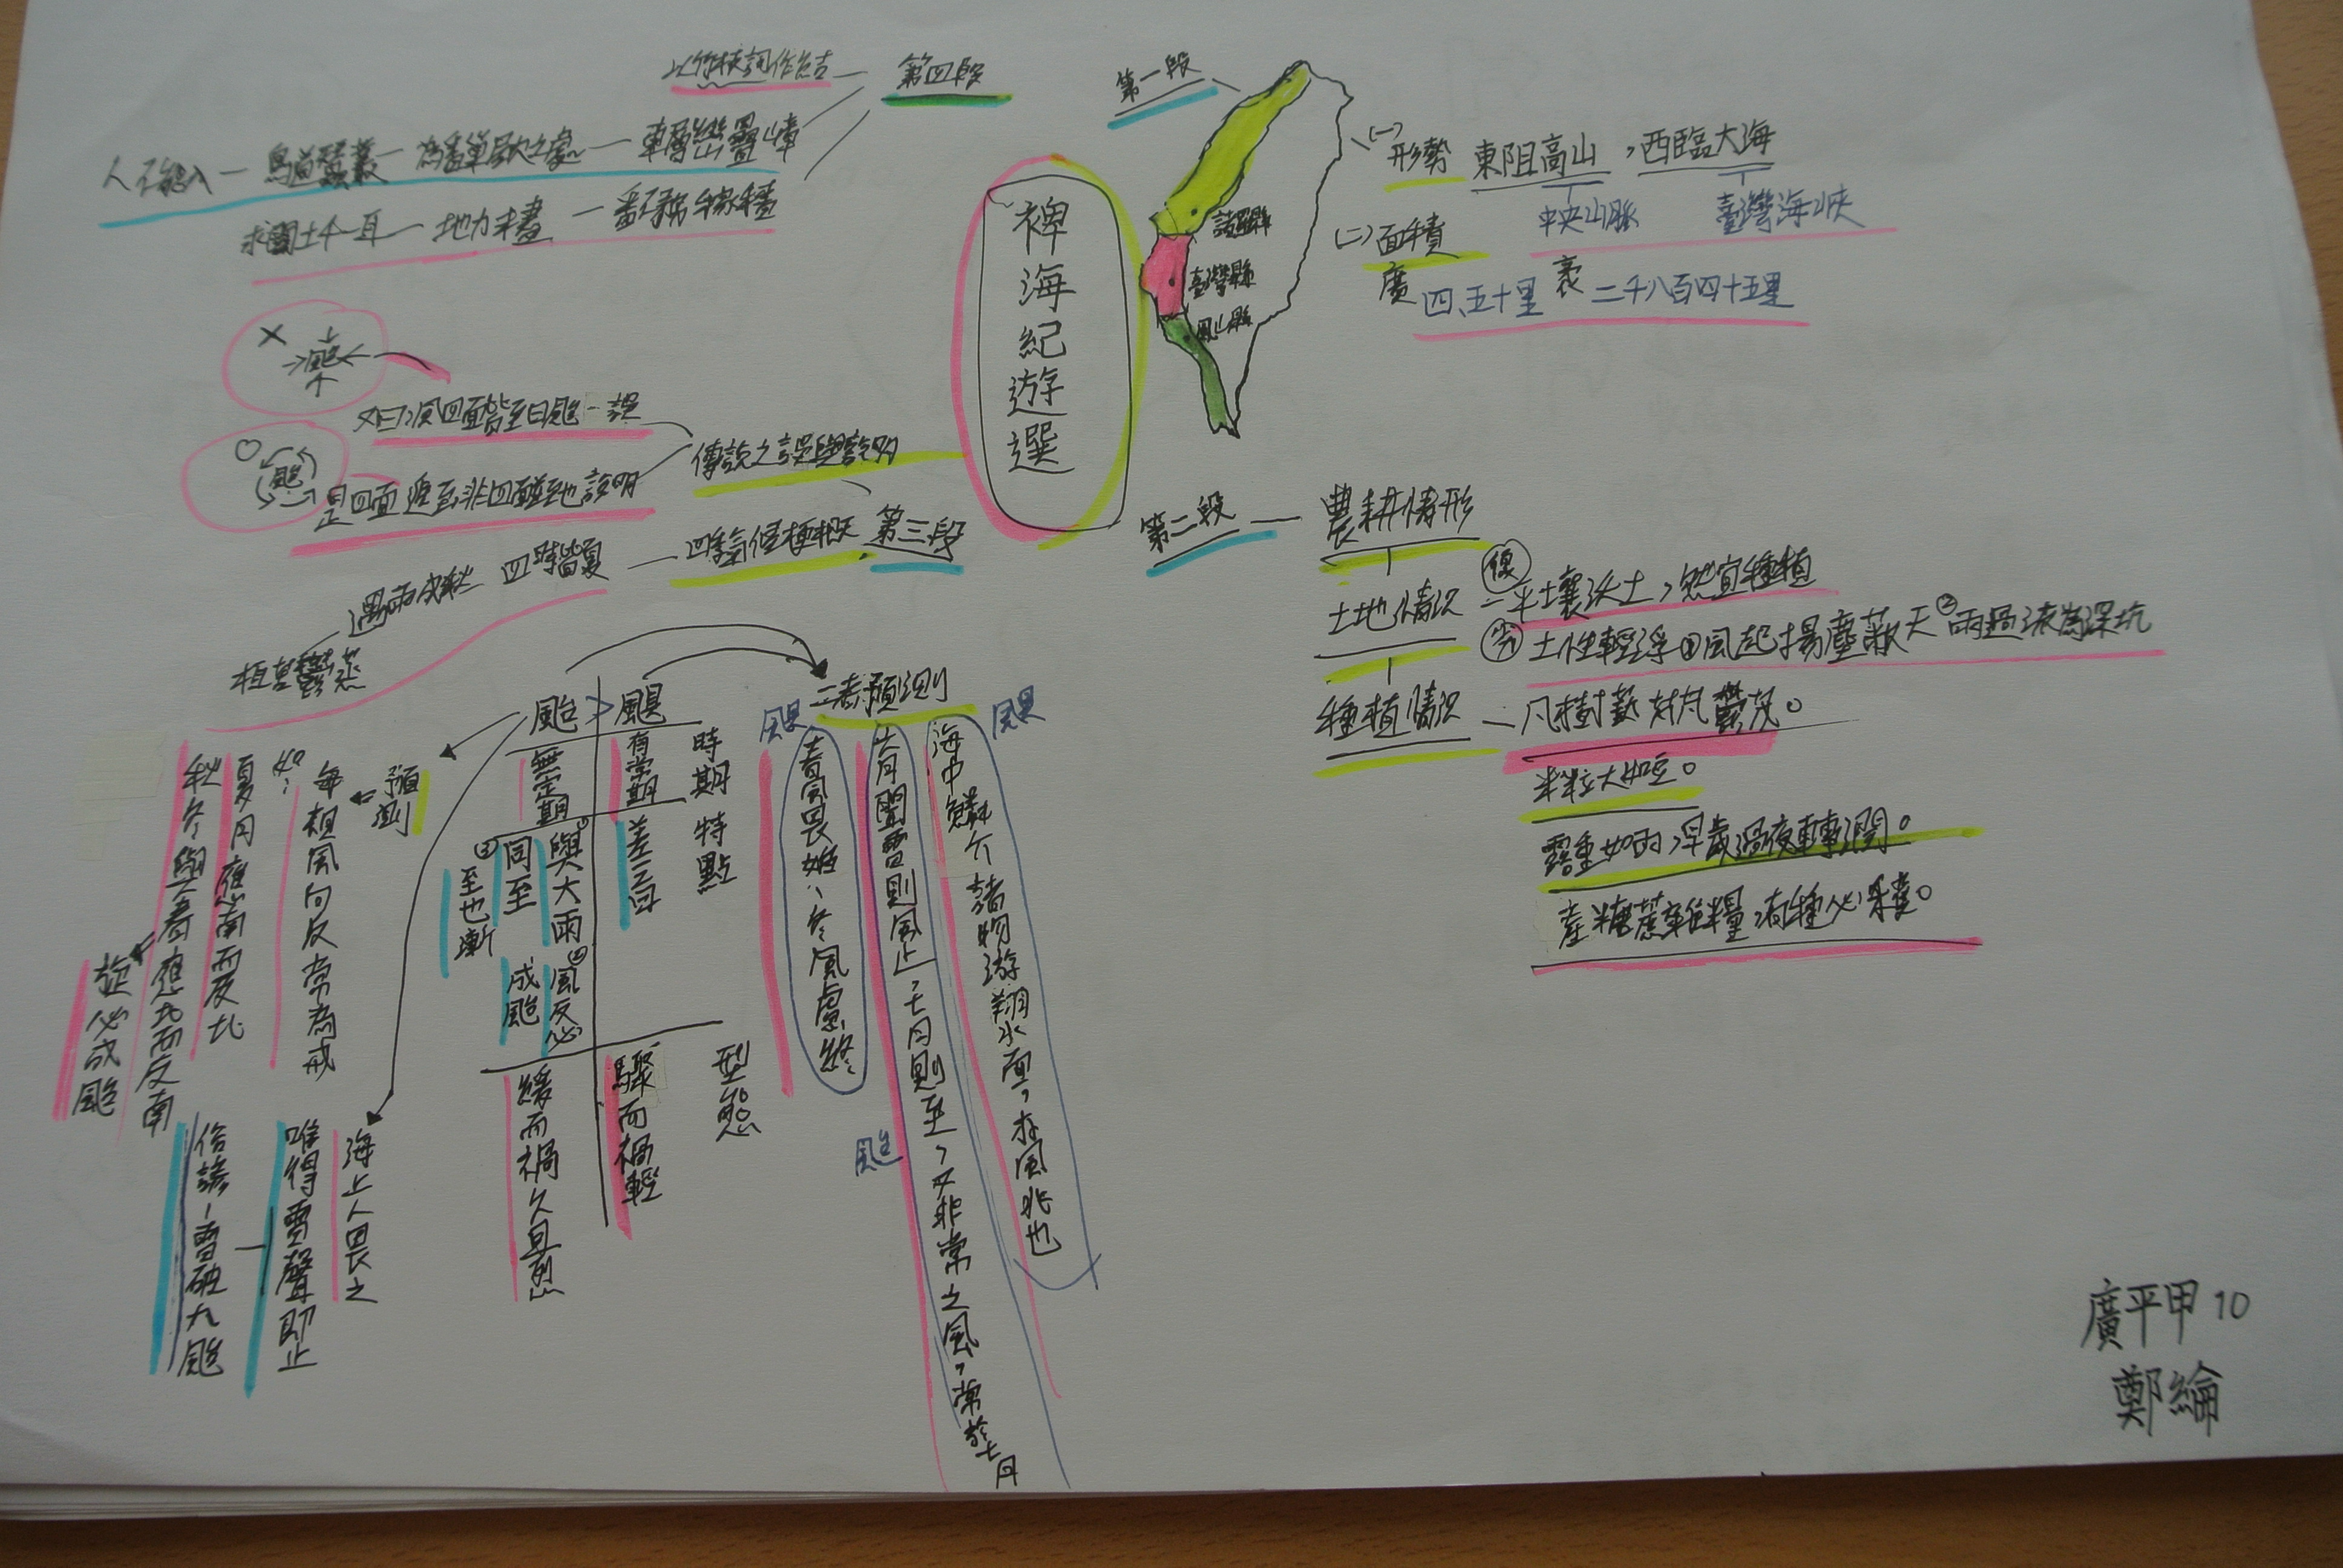 裨海紀遊選
第一段
諸羅縣
臺灣縣
鳳山縣
(一)形勢 東阻高山,西臨大海
中央山脈 臺灣海峽
(二)面積
廣 四、五十里 袤 二千八百四十五里
第二段 — 農耕情形
土地情況
優 — 平壤沃土,然宜種植
劣 土性輕浮 ①風起揚塵蔽天 ②雨過流為深坑
種植情況 — 凡樹蓺枝凡鬱茂。
米粒大如豆。
露重如雨,旱歲過夜轉潤。
產糖蔗雜糧,有種必穫。
第三段
四季氣候梗概
四時皆夏
遇雨成秋
恒苦鬱蒸
傳說之誤與說明
又曰:風四面皆至曰颱 — 誤
是四面遞至非四面並至也 說明
× 颱
○ 颱
颱 > 颶
時期
有常期
無定期
特點
差一日
①與大雨同至
②風反必成颱
③至也漸
型態
驟而禍輕
緩而禍久且烈
二者預測
颶
海中鱗介諸物游翔水面,亦風兆也
六月聞雷則風止,七月則至,又非常之風,常於七月
颱
颶
春風畏始,冬風慮終
預測
每視風向反常為戒
如:
夏月應南而反北
秋冬與春應北而反南
旋必成颱
海上人畏之
唯得雷聲即止
俗諺 — 雷破九颱
第四段
以竹枝詞作結
重巒疊嶂 — 為番單獸之處 — 鳥道蠶叢 — 人不能入
番不務稼穡 — 地力未盡 — 求闢土千一耳
廣平甲 10
鄭綸